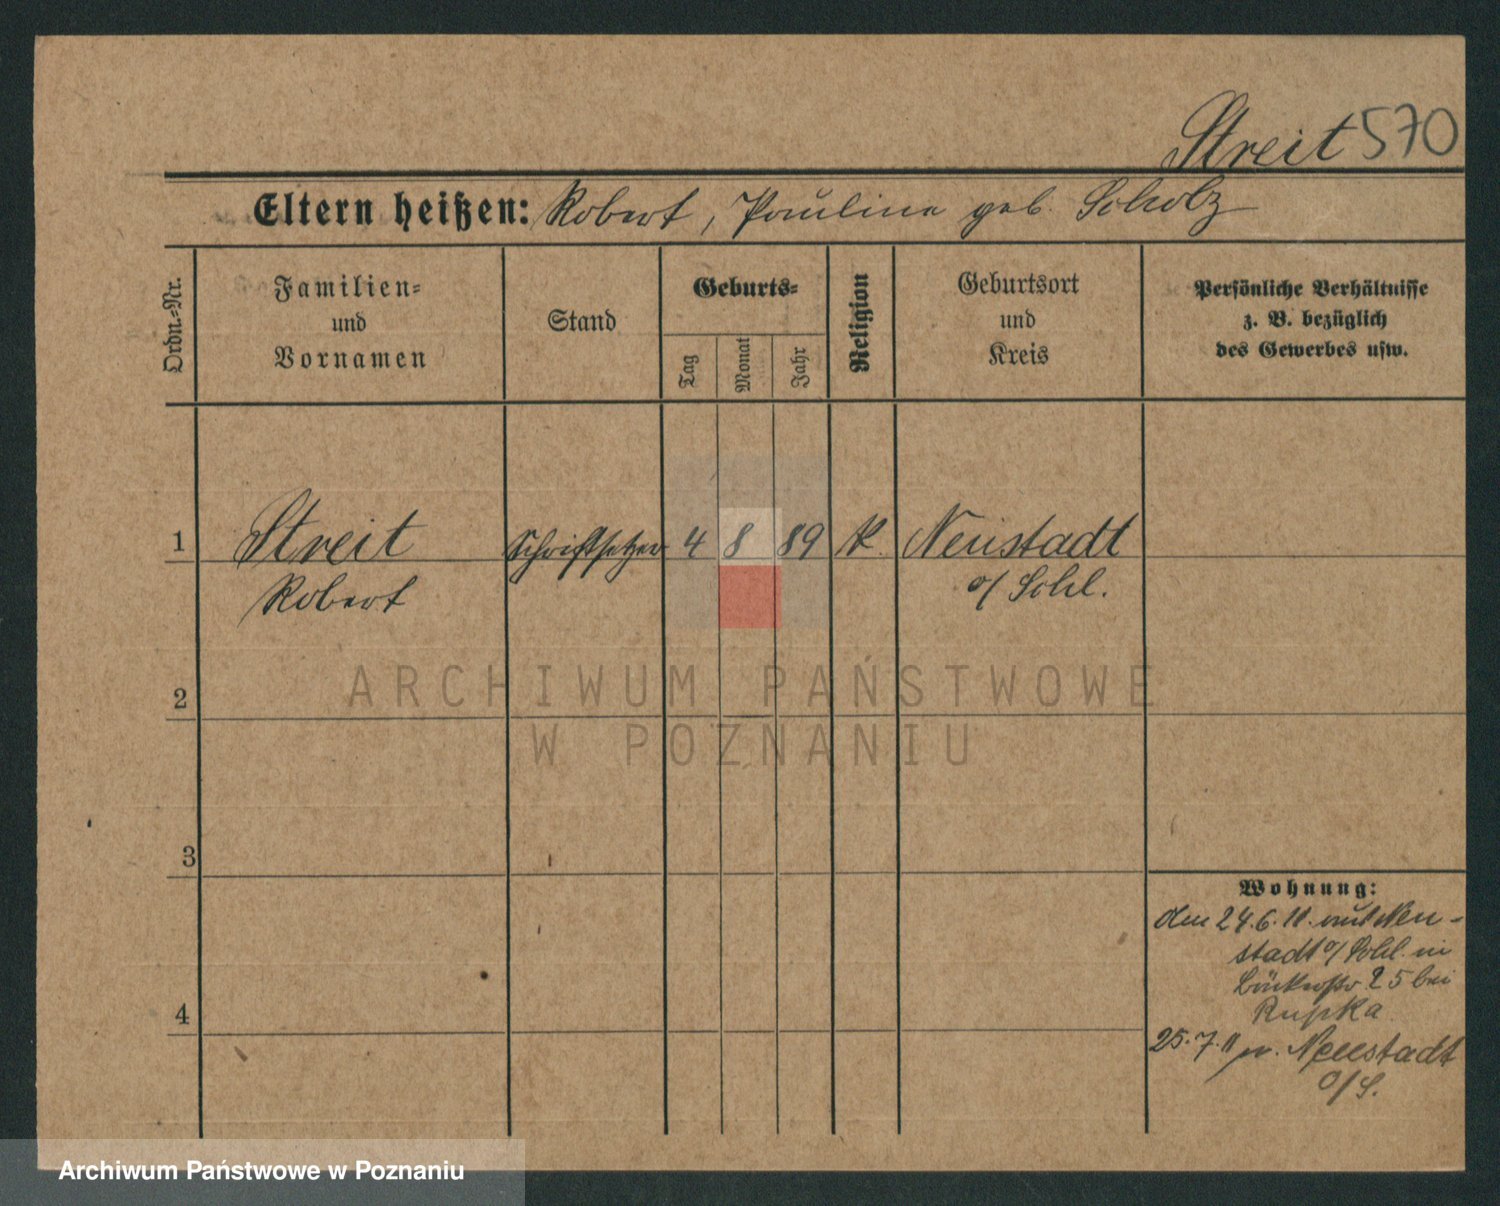 Streit 570
Eltern heißen: Robert, Pauline geb. Scholz
Ordn.-Nr.
Familien-
und
Vornamen
Stand
Geburts-
Tag
Monat
Jahr
Religion
Geburtsort
und
Kreis
Persönliche Verhältnisse
z. B. bezüglich
des Gewerbes usw.
1 Streit Schriftsetzer 4 8 89 k. Neustadt
Robert o/ Schl.
2
3
4
Wohnung:
den 24.6.11. aus Neu-
stadt o/ Schl. in
25 bei
Rupka
25.7.11 n. Neustadt
o/S.
ARCHIWUM PAŃSTWOWE
W POZNANIU
Archiwum Państwowe w Poznaniu